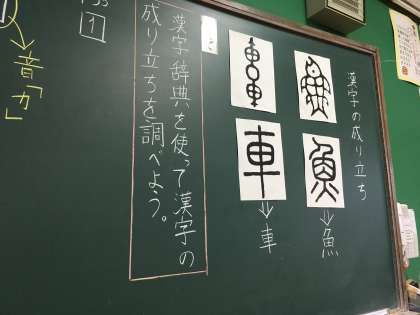 漢字の成り立ち
魚
→魚
車
→車
漢字辞典を使って漢字の
成り立ちを調べよう。
1
→音「カ」